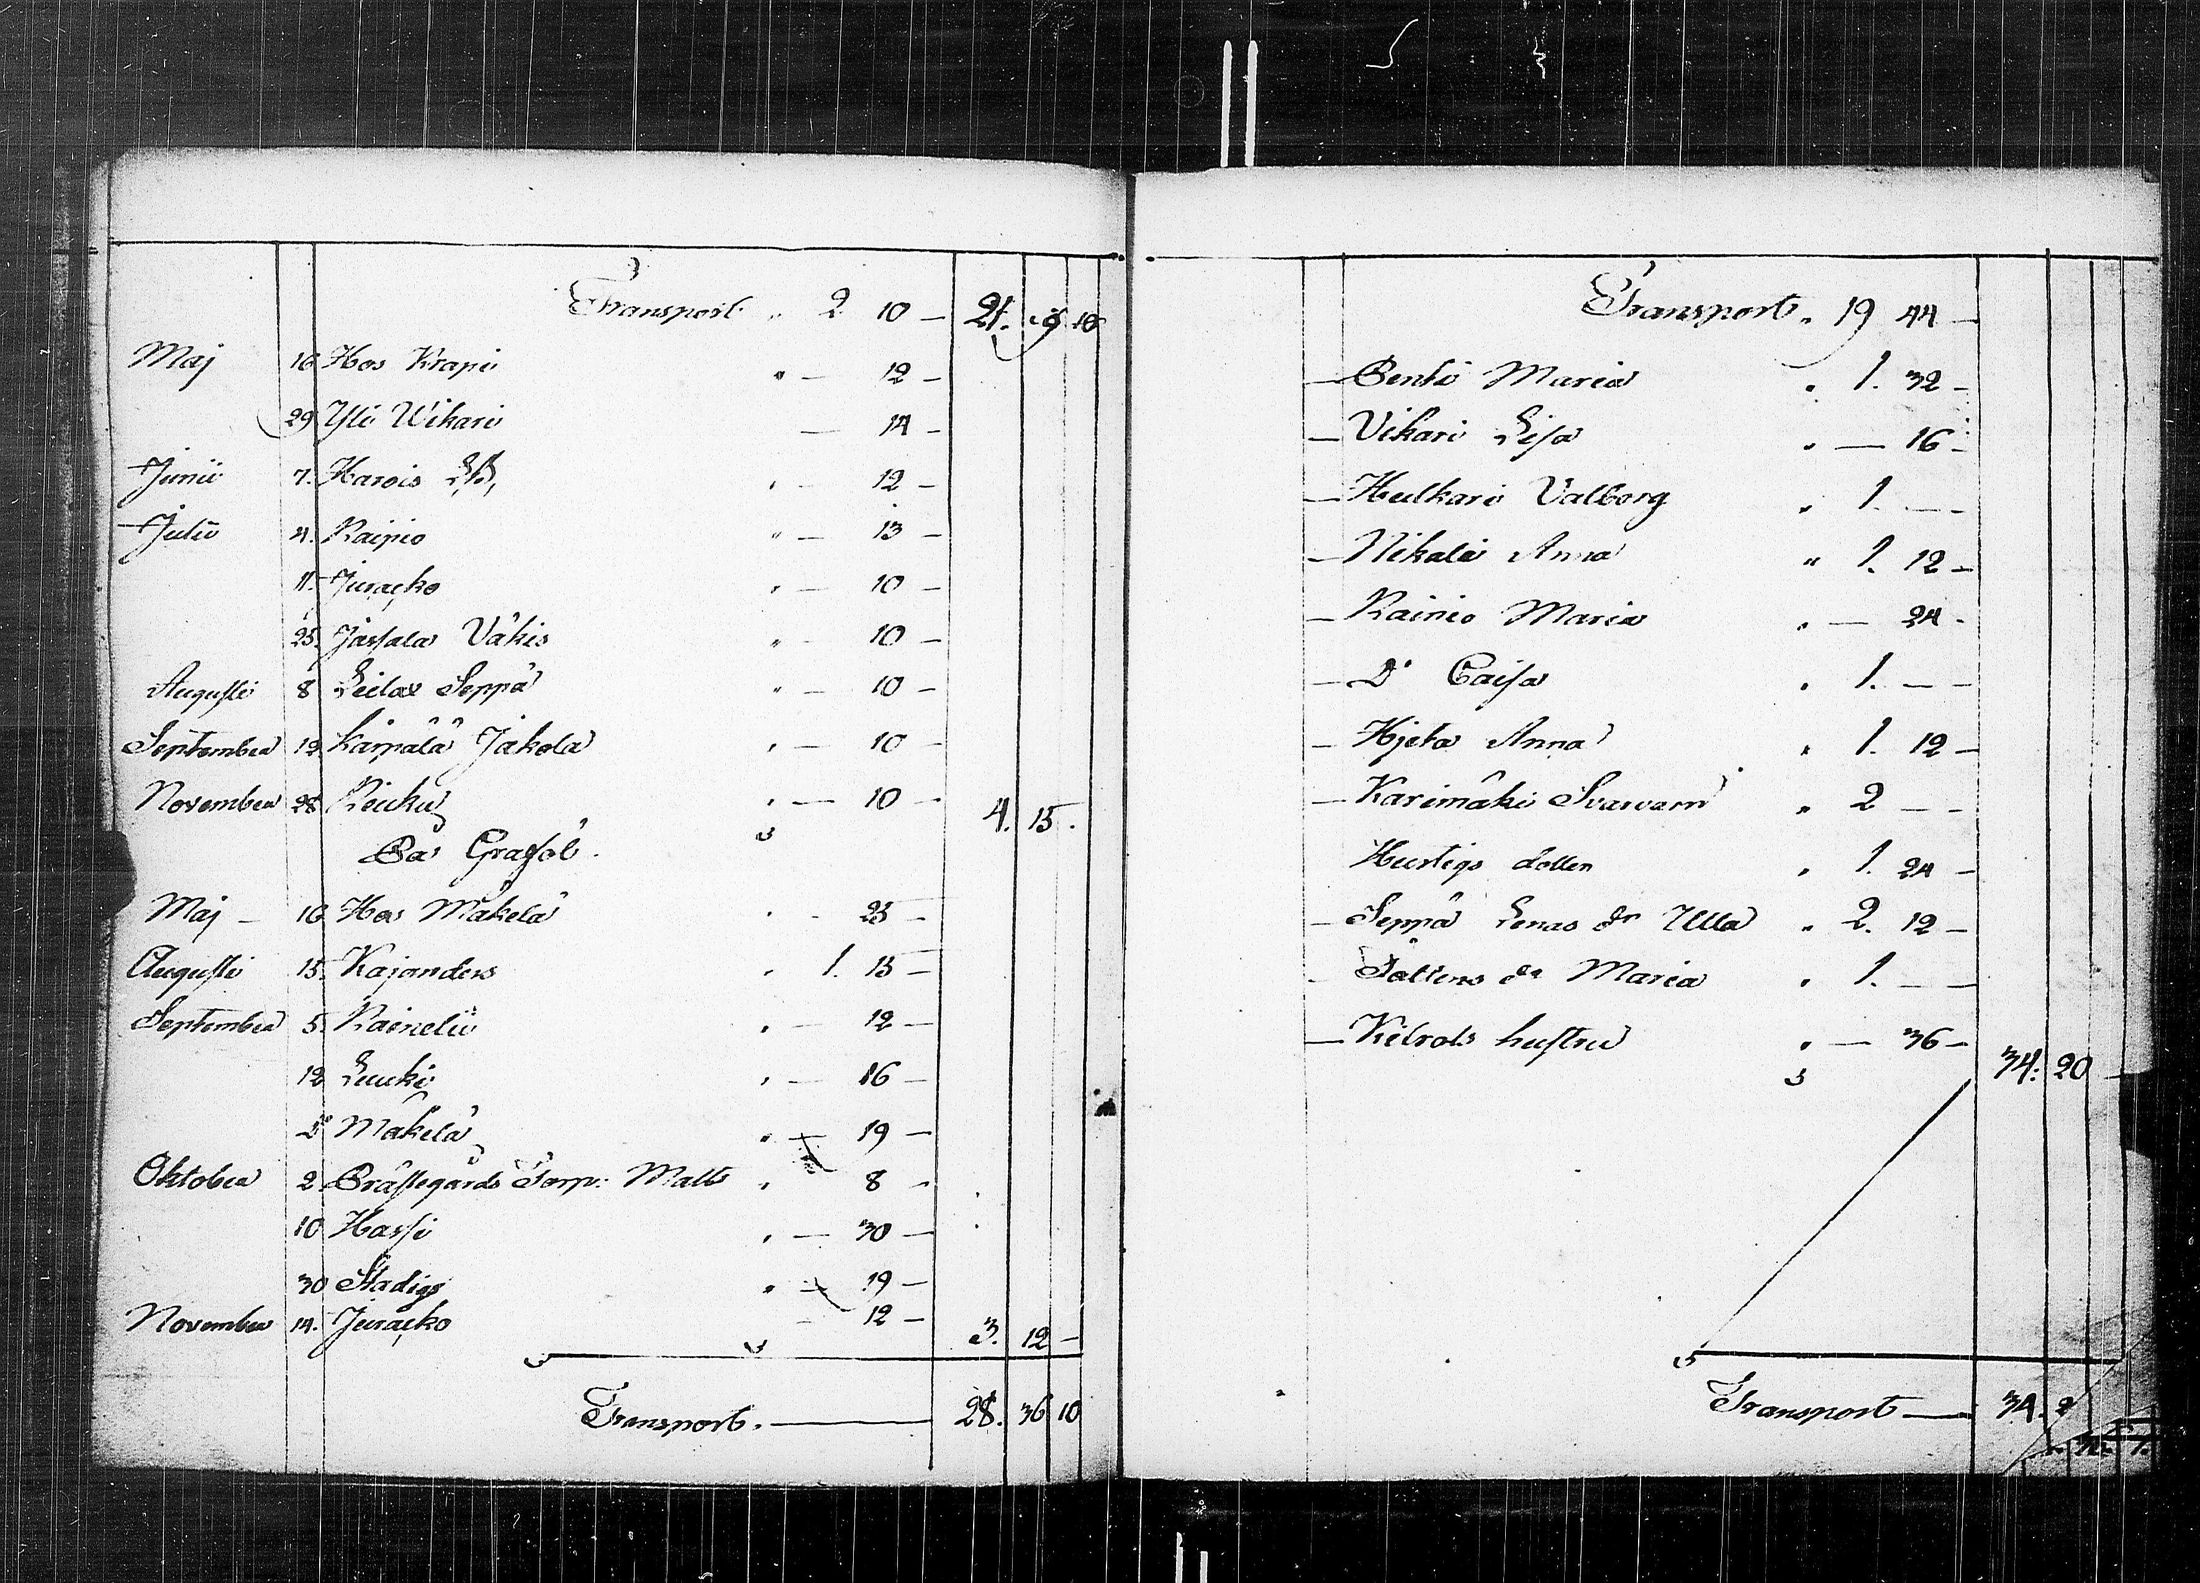 Transport " 2 10 — 21. 9 10
Maj 16 Hos Krapi " — 12 —
29 Yli Wikari — 14 —
Junii 7. Harois " — 12 —
Julii 4. Rainio " — 13 —
11. Juracko " — 10 —
25. Jassala Väkis " — 10 —
Augusti 8 Leilax Seppä " — 10 —
September 12 Kämpälä Jakola " — 10 —
November 28 Reuku " — 10 — 4. 15.
På Graföl.
Maj — 16 Hos Mäkelä " — 25 —
Augusti 15. Kajanders " 1. 15 —
September 5. Rainelii " — 12 —
12 Leuki " — 16 —
D° Mäkelä " — 19 —
Oktober 2. Prästegårds Torp: Matts " 8 —
10 Hassi " — 30 —
30 Stadigs " — 19 —
November 14. Juracko — 12 — 3. 12 —
Transport. — 28. 36 10
Transport " 19 44 —
— Pentii Maria " 1. 32 —
— Vikari Lisa " — 16 —
— Hulkari Valborg " 1. — —
— Nikala Anna " 1. 12 —
— Rainio Maria " — 24 —
— D° Caisa " 1. — —
— Hjeta Anna " 1. 12 —
— Karimäki Svarvarn " 2 — —
Hurtigs dotter " 1. 24 —
— Seppä Lenas dr Ulla " 2. 12 —
— Tättens dr Maria " 1. — —
— Kilrots hustru " — 36 — 34. 20 —
Transport — 34. 2